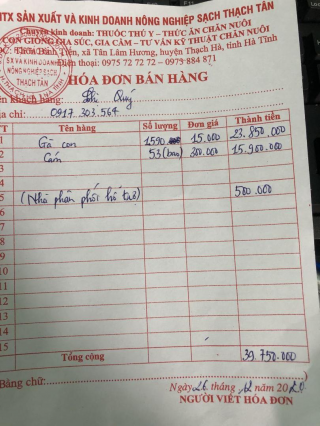 HTX SẢN XUẤT VÀ KINH DOANH NÔNG NGHIỆP SẠCH THẠCH TÂN
Chuyên kinh doanh: THUỐC THÚ Y - THỨC ĂN CHĂN NUÔI
CON GIỐNG GIA SÚC, GIA CẦM - TƯ VẤN KỸ THUẬT CHĂN NUÔI
xã Tân Lâm Hương, huyện Thạch Hà, tỉnh Hà Tĩnh
Điện thoại: 0975 72 72 72 - 0975 884 871
SX VÀ KINH DOANH
NÔNG NGHIỆP SẠCH
THẠCH TÂN
HÓA ĐƠN BÁN HÀNG
Tên khách hàng: Quý
Địa chỉ: 0917.303.564
TT Tên hàng Số lượng Đơn giá Thành tiền
1 Gà con 1590 15.000 23.850.000
2 Cám 53 (bao) 300.000 15.900.000
3
4
5 (Nhà phân phối hỗ trợ) 500.000
6
7
8
9
10
11
12
13
14
15
Tổng cộng 39.750.000
Bằng chữ:
Ngày 26 tháng 12 năm 2020
NGƯỜI VIẾT HÓA ĐƠN